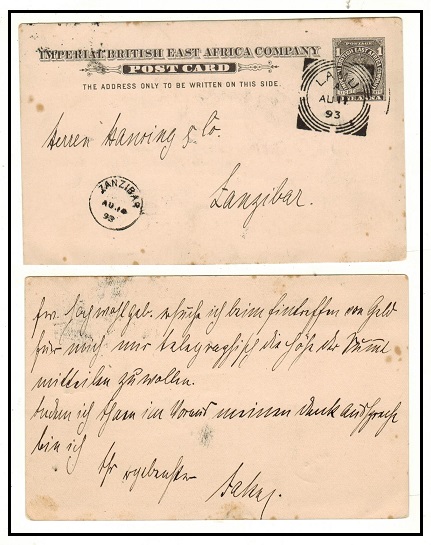 IMPERIAL BRITISH EAST AFRICA COMPANY
POST CARD
THE ADDRESS ONLY TO BE WRITTEN ON THIS SIDE.
1 1
ANNA
LAMU
AU 11
93
Herren Hansing & Co.
Zanzibar.
ZANZIBAR
AU 18
93
Ew. Hochwohlgeb. ersuche ich beim Eintreffen von Geld
für mich mir telegraphisch die Höhe der Summe
mitteilen zu wollen.
Indem ich Ihnen im Voraus meinen Dank ausspreche
bin ich
Ihr ergebenster